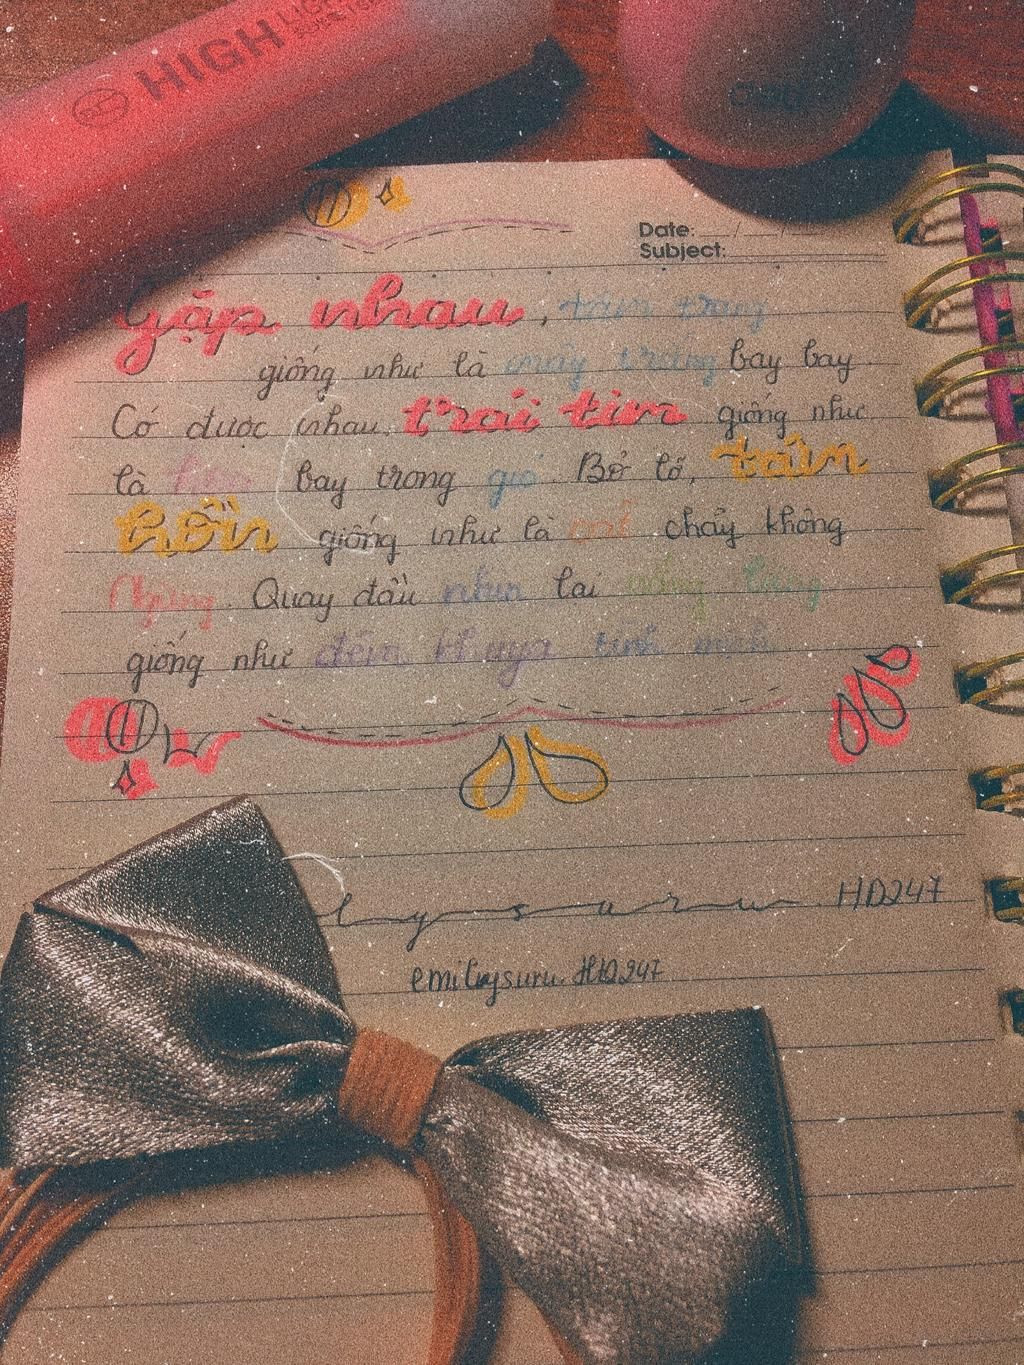 HIGH
Date: __/__/__
Subject:
Gặp nhau, tâm trạng
giống như là mây trắng bay bay
Có được nhau, trái tim giống như
là hoa bay trong gió. Bỏ lỡ, tâm
hồn giống như là cát chảy không
ngừng. Quay đầu nhìn lại
giống như đêm khuya tĩnh mịch
lysuru HD247
emilysuru HD247